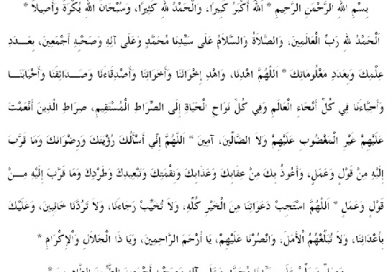 بِسْمِ اللهِ الرَّحْمَنِ الرَّحِيمِ * اللهُ أَكْبَرُ كَبِيرًا، وَالْحَمْدُ للهِ كَثِيرًا، وَسُبْحَانَ اللهِ بُكْرَةً وَأَصِيلاً *
الْحَمْدُ للهِ رَبِّ الْعَالَمِينَ، وَالصَّلاَةُ وَالسَّلاَمُ عَلَى سَيِّدِنَا مُحَمَّدٍ وَعَلَى آلِهِ وَصَحْبِهِ أَجْمَعِينَ، بِعَدَدِ
عِلْمِكَ وَبِعَدَدِ مَعْلُومَاتِكَ * اللَّهُمَّ اهْدِنَا، وَاهْدِ إِخْوَانَنَا وَأَخَوَاتِنَا وَأَصْدِقَاءَنَا وَصَدِيقَاتِنَا وَأَحْبَابَنَا
وَأَحِبَّاءَنَا فِي كُلِّ أَنْحَاءِ الْعَالَمِ وَفِي كُلِّ نَوَاحِ الْحَيَاةِ إِلَى الصِّرَاطِ الْمُسْتَقِيمِ، صِرَاطِ الَّذِينَ أَنْعَمْتَ
عَلَيْهِمْ غَيْرِ الْمَغْضُوبِ عَلَيْهِمْ وَلاَ الضَّالِّينَ، آمِينَ * اللَّهُمَّ إِنِّي أَسْأَلُكَ رُؤْيَتَكَ وَرِضْوَانَكَ وَمَا قَرَّبَ
إِلَيْهِ مِنْ قَوْلٍ وَعَمَلٍ، وَأَعُوذُ بِكَ مِنْ عِقَابِكَ وَعَذَابِكَ وَنِقْمَتِكَ وَتَبْعِيدِكَ وَطَرْدِكَ وَمَا قَرَّبَ إِلَيْهِ مِنْ
قَوْلٍ وَعَمَلٍ * اللَّهُمَّ اسْتَجِبْ دَعَوَاتِنَا مِنَ الْخَيْرِ كُلِّهِ، وَلاَ تُخَيِّبْ رَجَاءَنَا، وَلاَ تَرُدَّنَا خَائِبِينَ، وَعَلَيْكَ
بِأَعْدَائِنَا، وَلاَ تُبَلِّغْهُمُ الْأَمَلَ، وَانْصُرْنَا عَلَيْهِمْ، يَا أَرْحَمَ الرَّاحِمِينَ، وَيَا ذَا الْجَلاَلِ وَالْإِكْرَامِ *